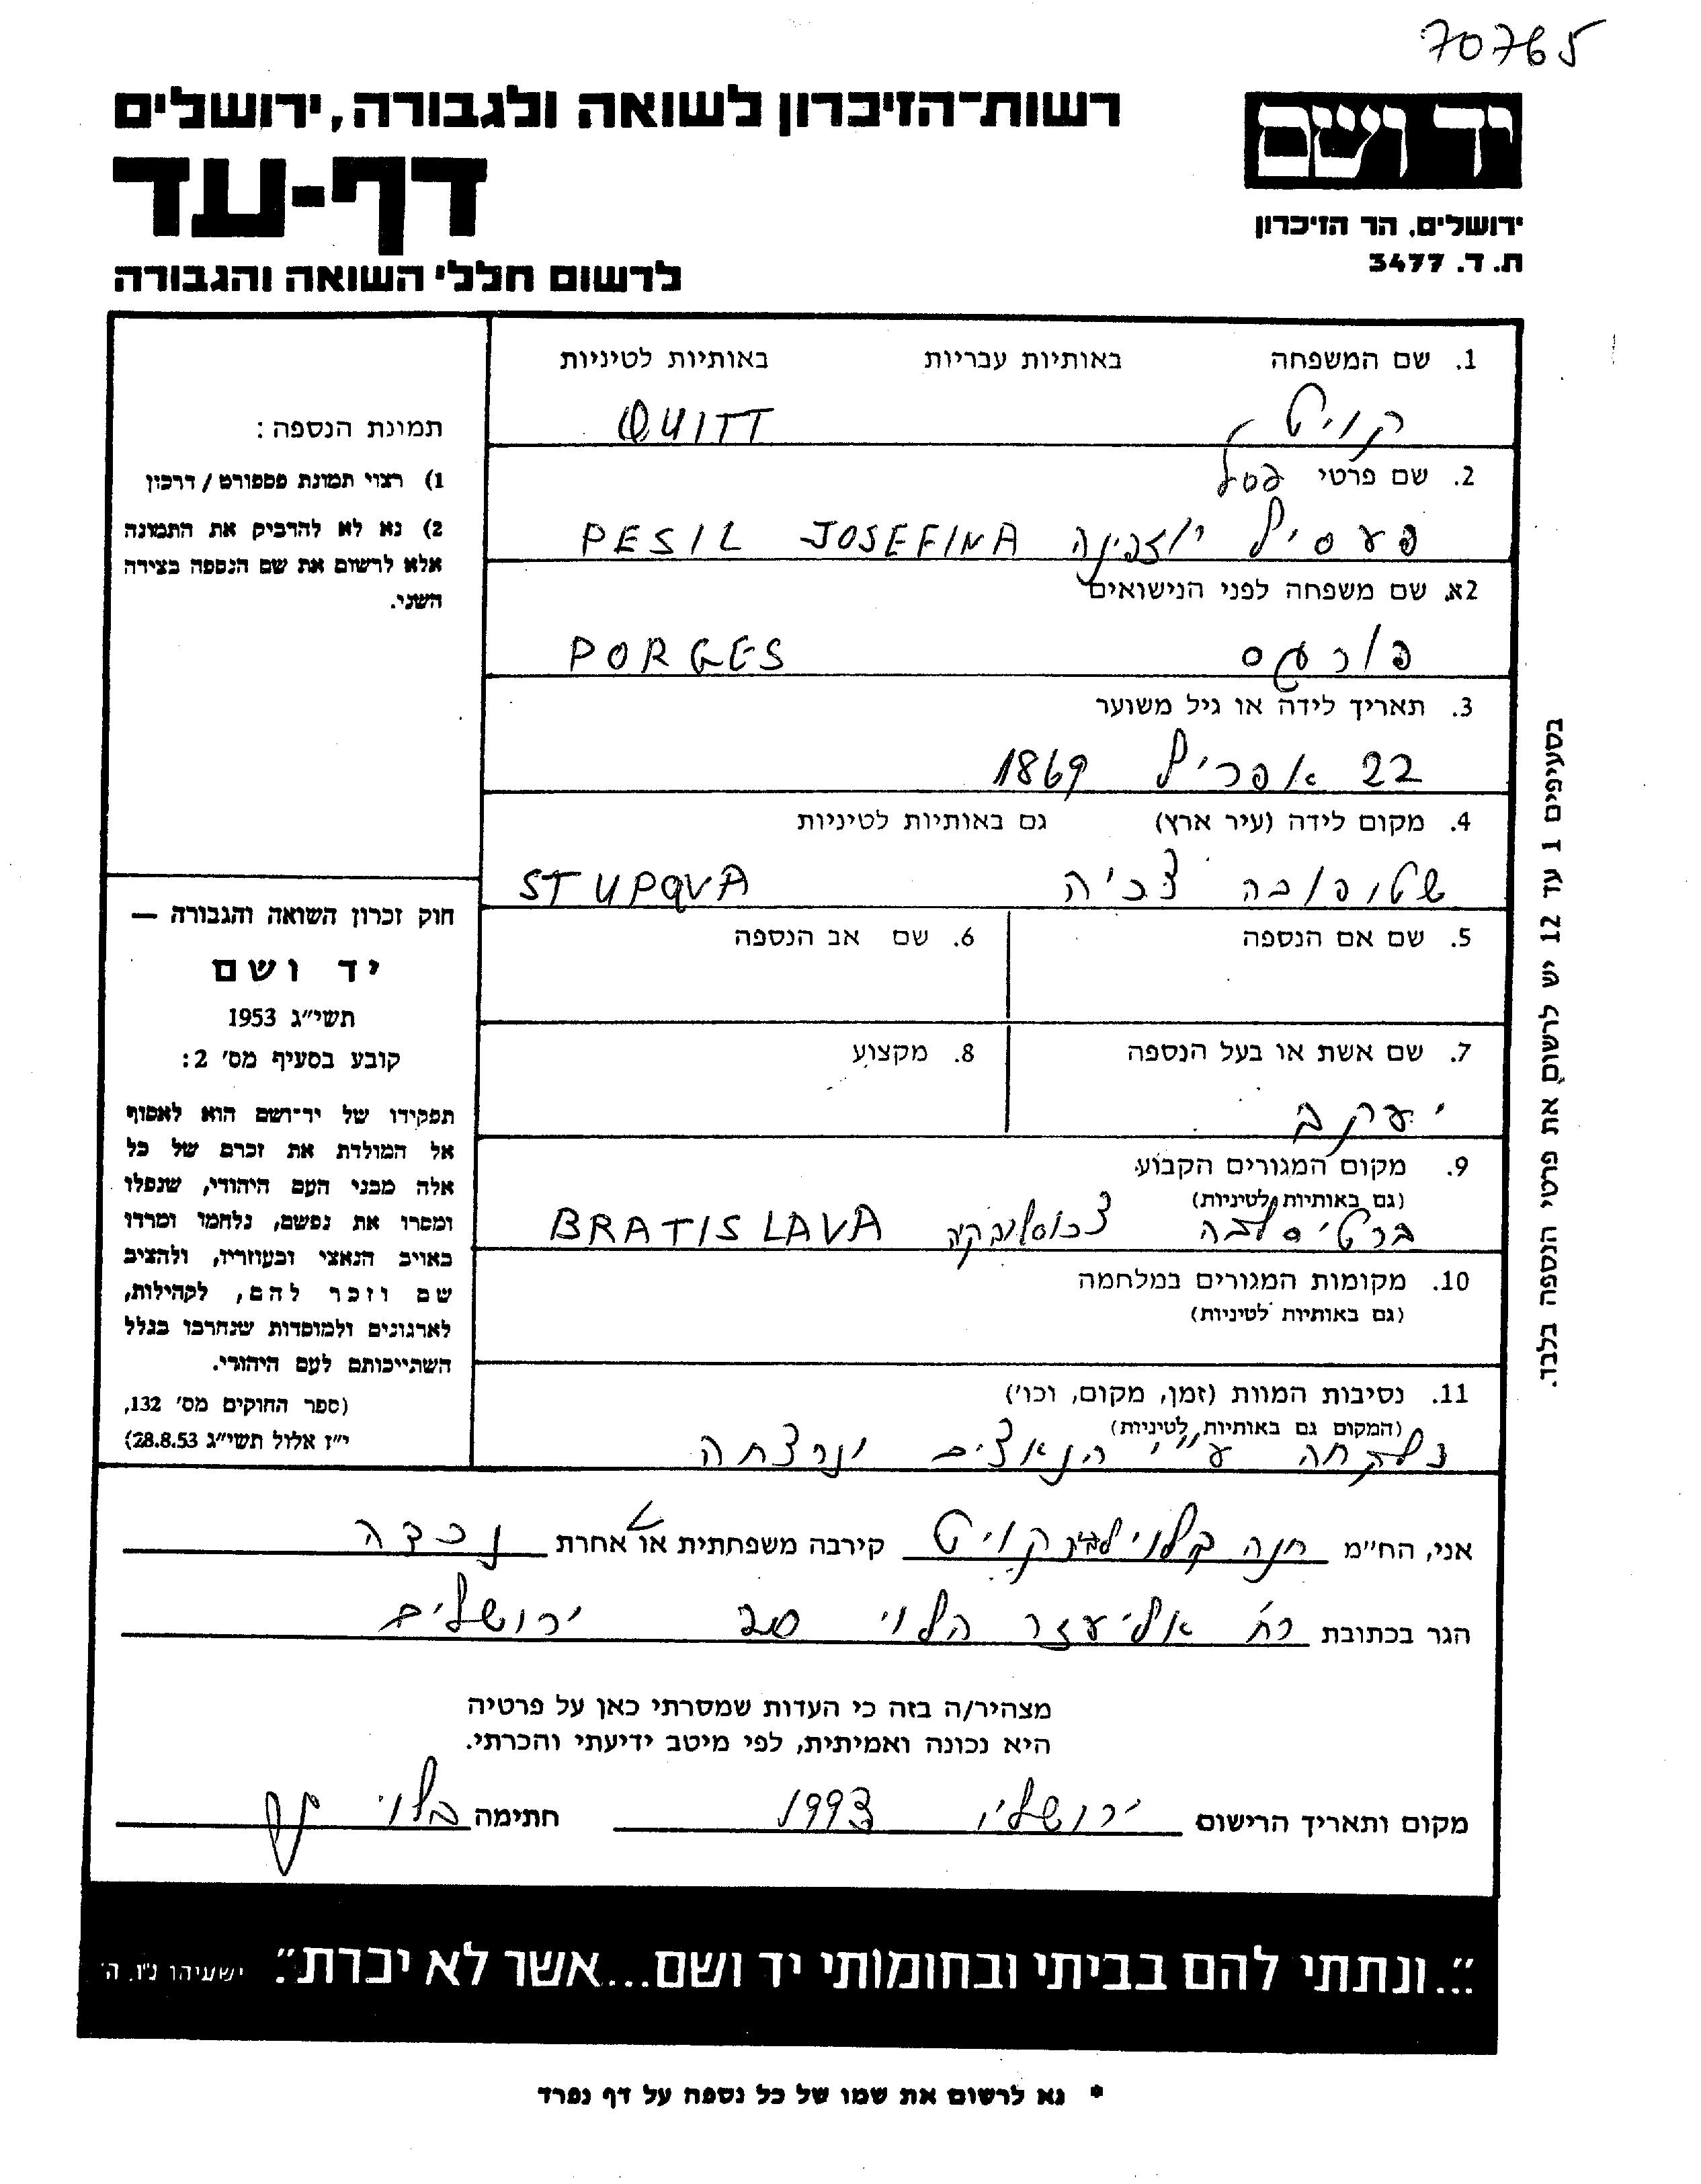 70765
רשות־הזיכרון לשואה ולגבורה, ירושלים
דף-עד
לרשום חללי השואה והגבורה
יד ושם
ירושלים, הר הזיכרון
ת. ד. 3477
1. שם המשפחה באותיות עבריות באותיות לטיניות
קויט QUITT
2. שם פרטי פסל
פעסיל יוזפינה PESIL JOSEFINA
2א. שם משפחה לפני הנישואים
פורגעס PORGES
3. תאריך לידה או גיל משוער
22 אפריל 1869
4. מקום לידה (עיר ארץ) גם באותיות לטיניות
שטופובה צכיה STUPOVA
5. שם אם הנספה 6. שם אב הנספה
7. שם אשת או בעל הנספה 8. מקצוע
יעקב
9. מקום המגורים הקבוע
(גם באותיות לטיניות)
ברטיסלבה צכוסלובקיה BRATISLAVA
10. מקומות המגורים במלחמה
(גם באותיות לטיניות)
11. נסיבות המוות (זמן, מקום, וכו')
(המקום גם באותיות לטיניות)
נלקחה ע"י הנאצים ונרצחה
תמונת הנספה:
1) רצוי תמונת פספורט / דרכון
2) נא לא להדביק את התמונה
אלא לרשום את שם הנספה בצידה
השני.
חוק זכרון השואה והגבורה —
יד ושם
תשי"ג 1953
קובע בסעיף מס' 2:
תפקידו של יד־ושם הוא לאסוף
אל המולדת את זכרם של כל
אלה מבני העם היהודי, שנפלו
ומסרו את נפשם, נלחמו ומרדו
באויב הנאצי ובעוזריו, ולהציב
שם וזכר להם, לקהילות,
לארגונים ולמוסדות שנחרבו בגלל
השתייכותם לעם היהודי.
(ספר החוקים מס' 132,
י"ז אלול תשי"ג 28.8.53)
בסעיפים 1 עד 12 יש לרשום את פרטי הנספה בלבד.
אני, הח"מ חנה בלוי לבית קויט קירבה משפחתית או אחרת נכדה
הגר בכתובת רח' אליעזר הלוי 20 ירושלים
מצהיר/ה בזה כי העדות שמסרתי כאן על פרטיה
היא נכונה ואמיתית, לפי מיטב ידיעתי והכרתי.
מקום ותאריך הרישום ירושלים 1993 חתימה בלוי
"...ונתתי להם בביתי ובחומותי יד ושם...אשר לא יכרת". ישעיהו נ"ו, ה'
* נא לרשום את שמו של כל נספה על דף נפרד